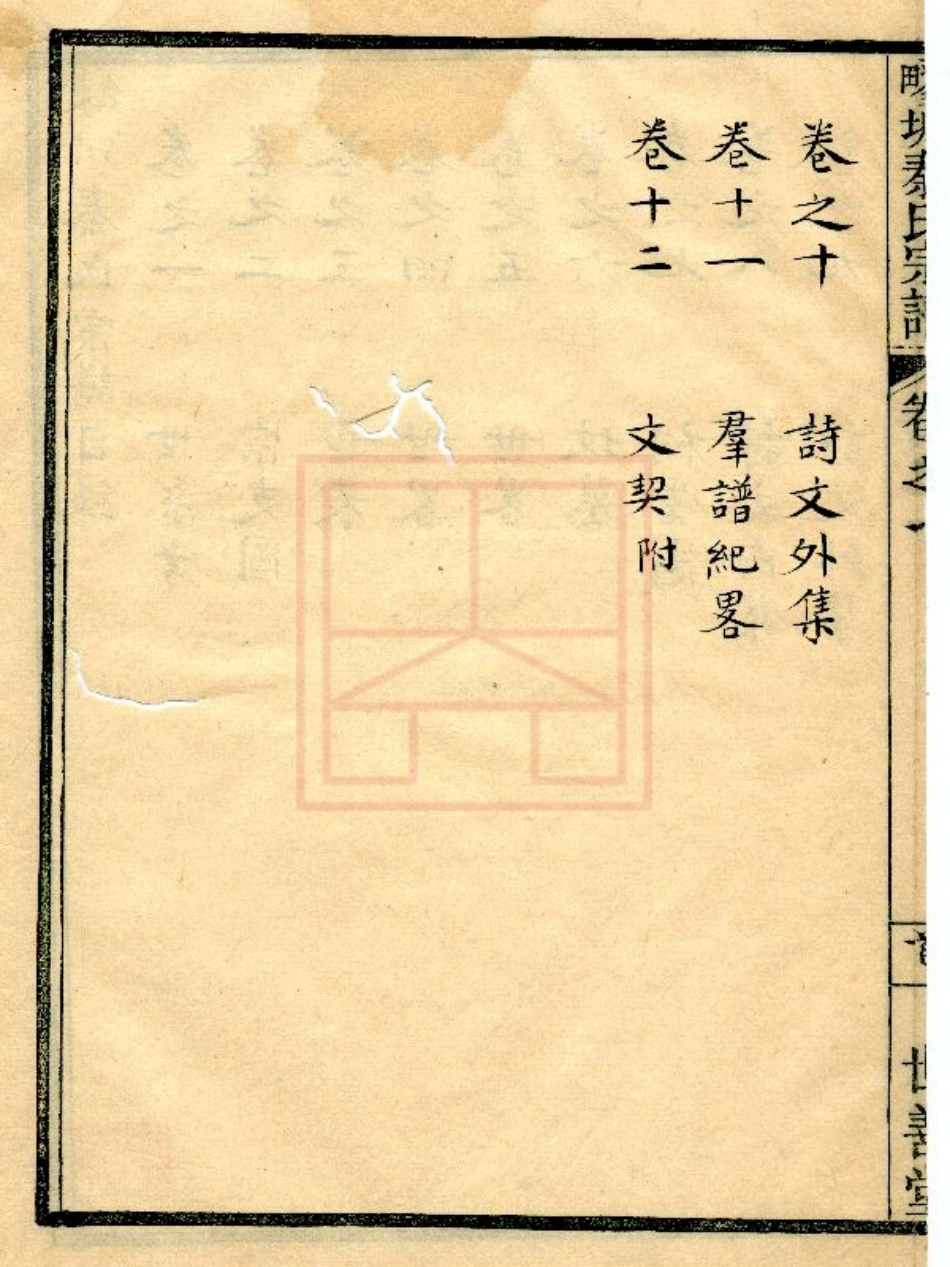 秦氏宗譜
卷之
世善堂
卷之十 詩文外集
卷十一 羣譜紀畧
卷十二 文契附